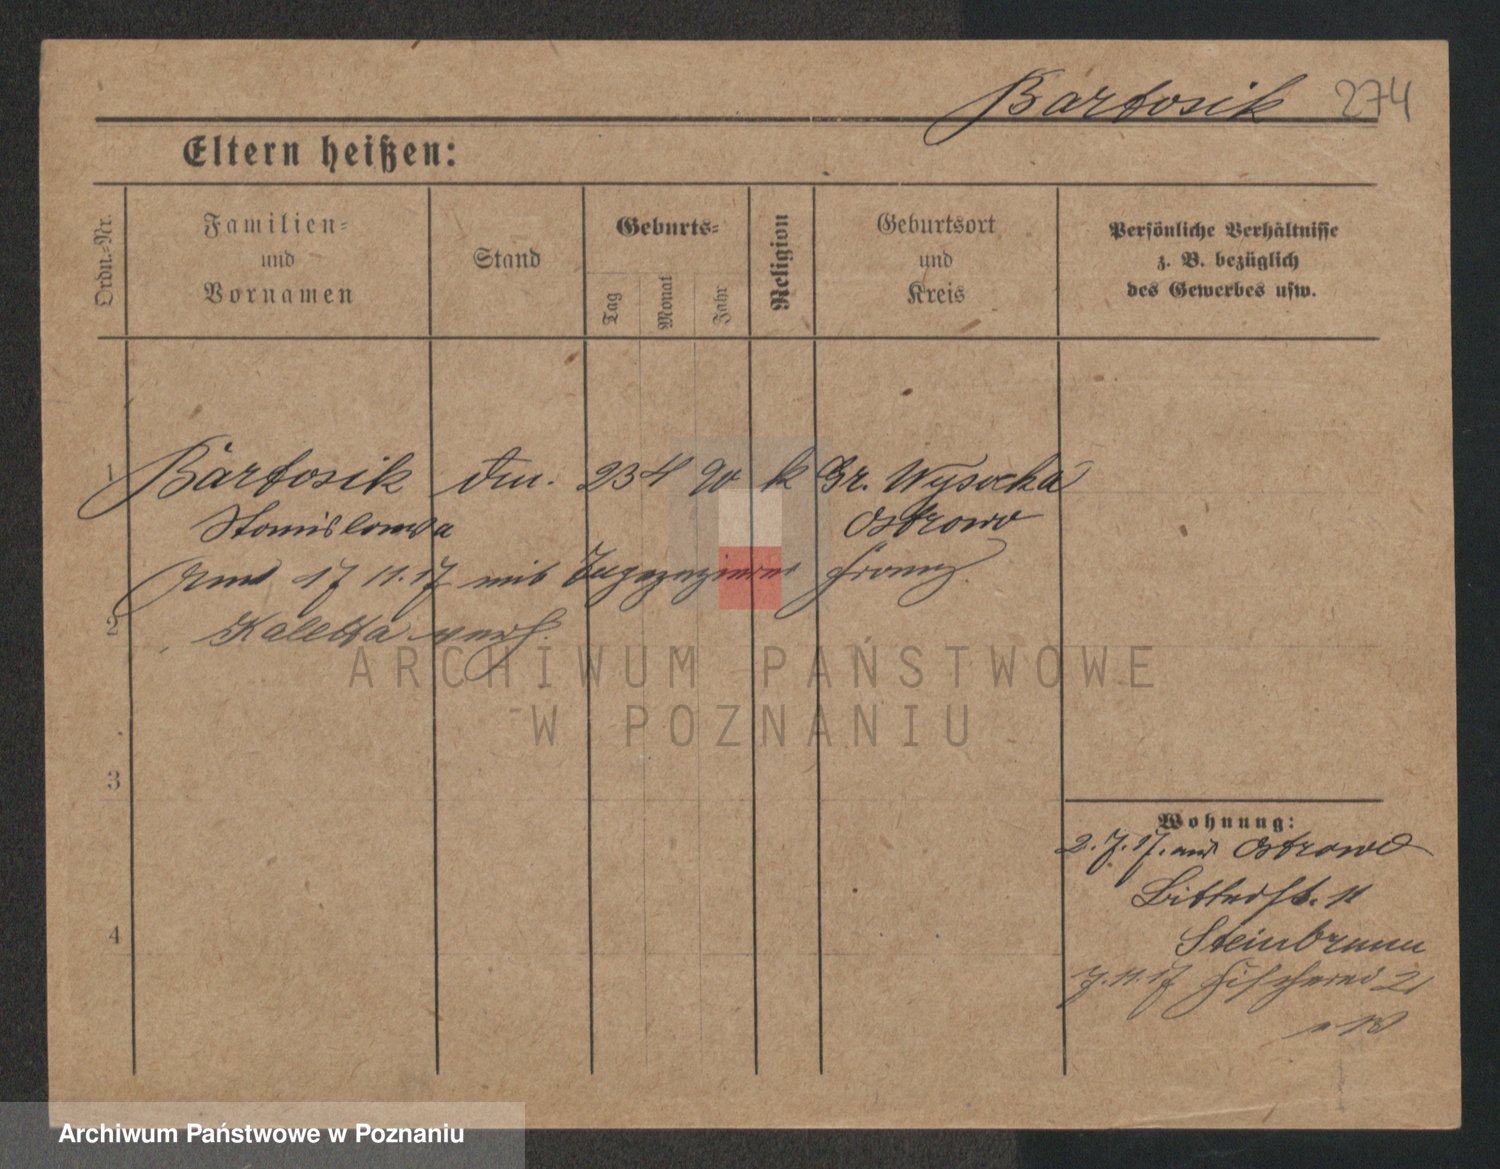 Bartosik 274
Eltern heißen:
Ordn.-Nr.
Familien-
und
Vornamen
Stand
Geburts-
Tag
Monat
Jahr
Religion
Geburtsort
und
Kreis
Persönliche Verhältnisse
z. B. bezüglich
des Gewerbes usw.
1 Bartosik 23 4 90 k Gr. Wysocka
Stanislawa Ostrowo
17 11. 17 mit Franz
2 Kaletka verh.
ARCHIWUM PAŃSTWOWE
W POZNANIU
3
4
Wohnung:
2. 7. 17. aus Ostrowo
Bitterstr. 11
Steinbrunn
7. 11. 17 Fischerei 21
Archiwum Państwowe w Poznaniu